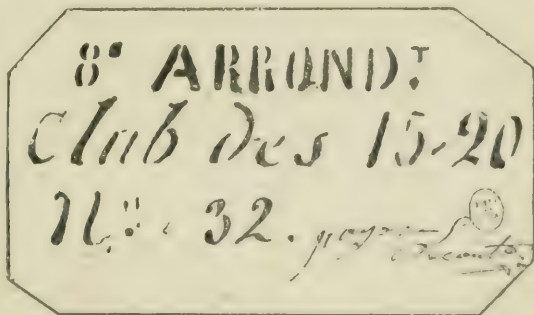 8e ARRONDT
Club des 15-20
No. 32.